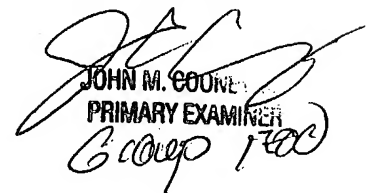 JOHN M. COONEY
PRIMARY EXAMINER
Group 1700